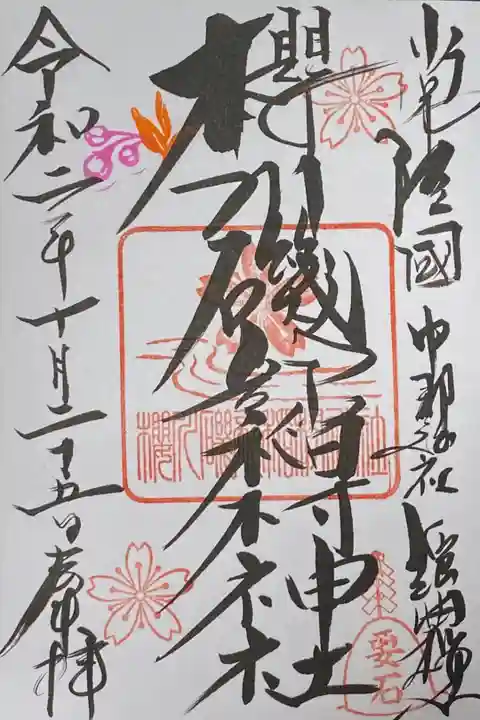 常陸國 中郡総社
櫻川磯部稲村神社
令和二年十月二十五日 奉拝
櫻川磯部稲村神社
要石